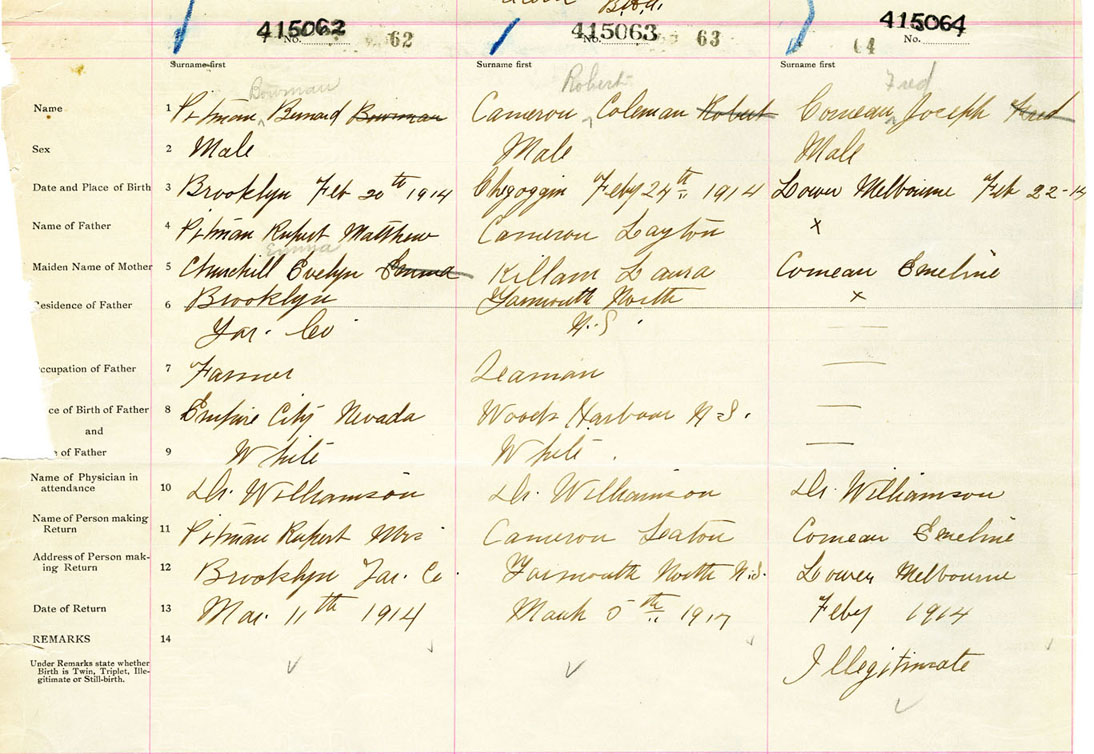 B.H.d.
415062 415063 415064
No. 62 No. 63 64 No.
Surname first Surname first Surname first
Bowman Robert Fred
Name 1 Pitman Bernard Bowman Cameron Coleman Robert Comeau Joseph Fred
Sex 2 Male Male Male
Date and Place of Birth 3 Brooklyn Feb 20th 1914 Chegoggin Feby 24th 1914 Lower Melbourne Feb 22-14
Name of Father 4 Pitman Rupert Matthew Cameron Layton x
Emma
Maiden Name of Mother 5 Churchill Evelyn Emma Killam Laura Comeau Emeline
Residence of Father 6 Brooklyn Yarmouth North x
Yar. Co N.S.
ccupation of Father 7 Farmer Seaman
ce of Birth of Father 8 Empire City Nevada Woods Harbour N.S.
and
e of Father 9 White White
Name of Physician in
attendance 10 Dr. Williamson Dr. Williamson Dr. Williamson
Name of Person making
Return 11 Pitman Rupert Mrs Cameron Leaton Comeau Emeline
Address of Person mak-
ing Return 12 Brooklyn Yar. Co. Yarmouth North N.S. Lower Melbourne
Date of Return 13 Mar. 11th 1914 March 5th 1914 Feby 1914
REMARKS 14
Under Remarks state whether
Birth is Twin, Triplet, Ille-
gitimate or Still-birth.
Illegitimate